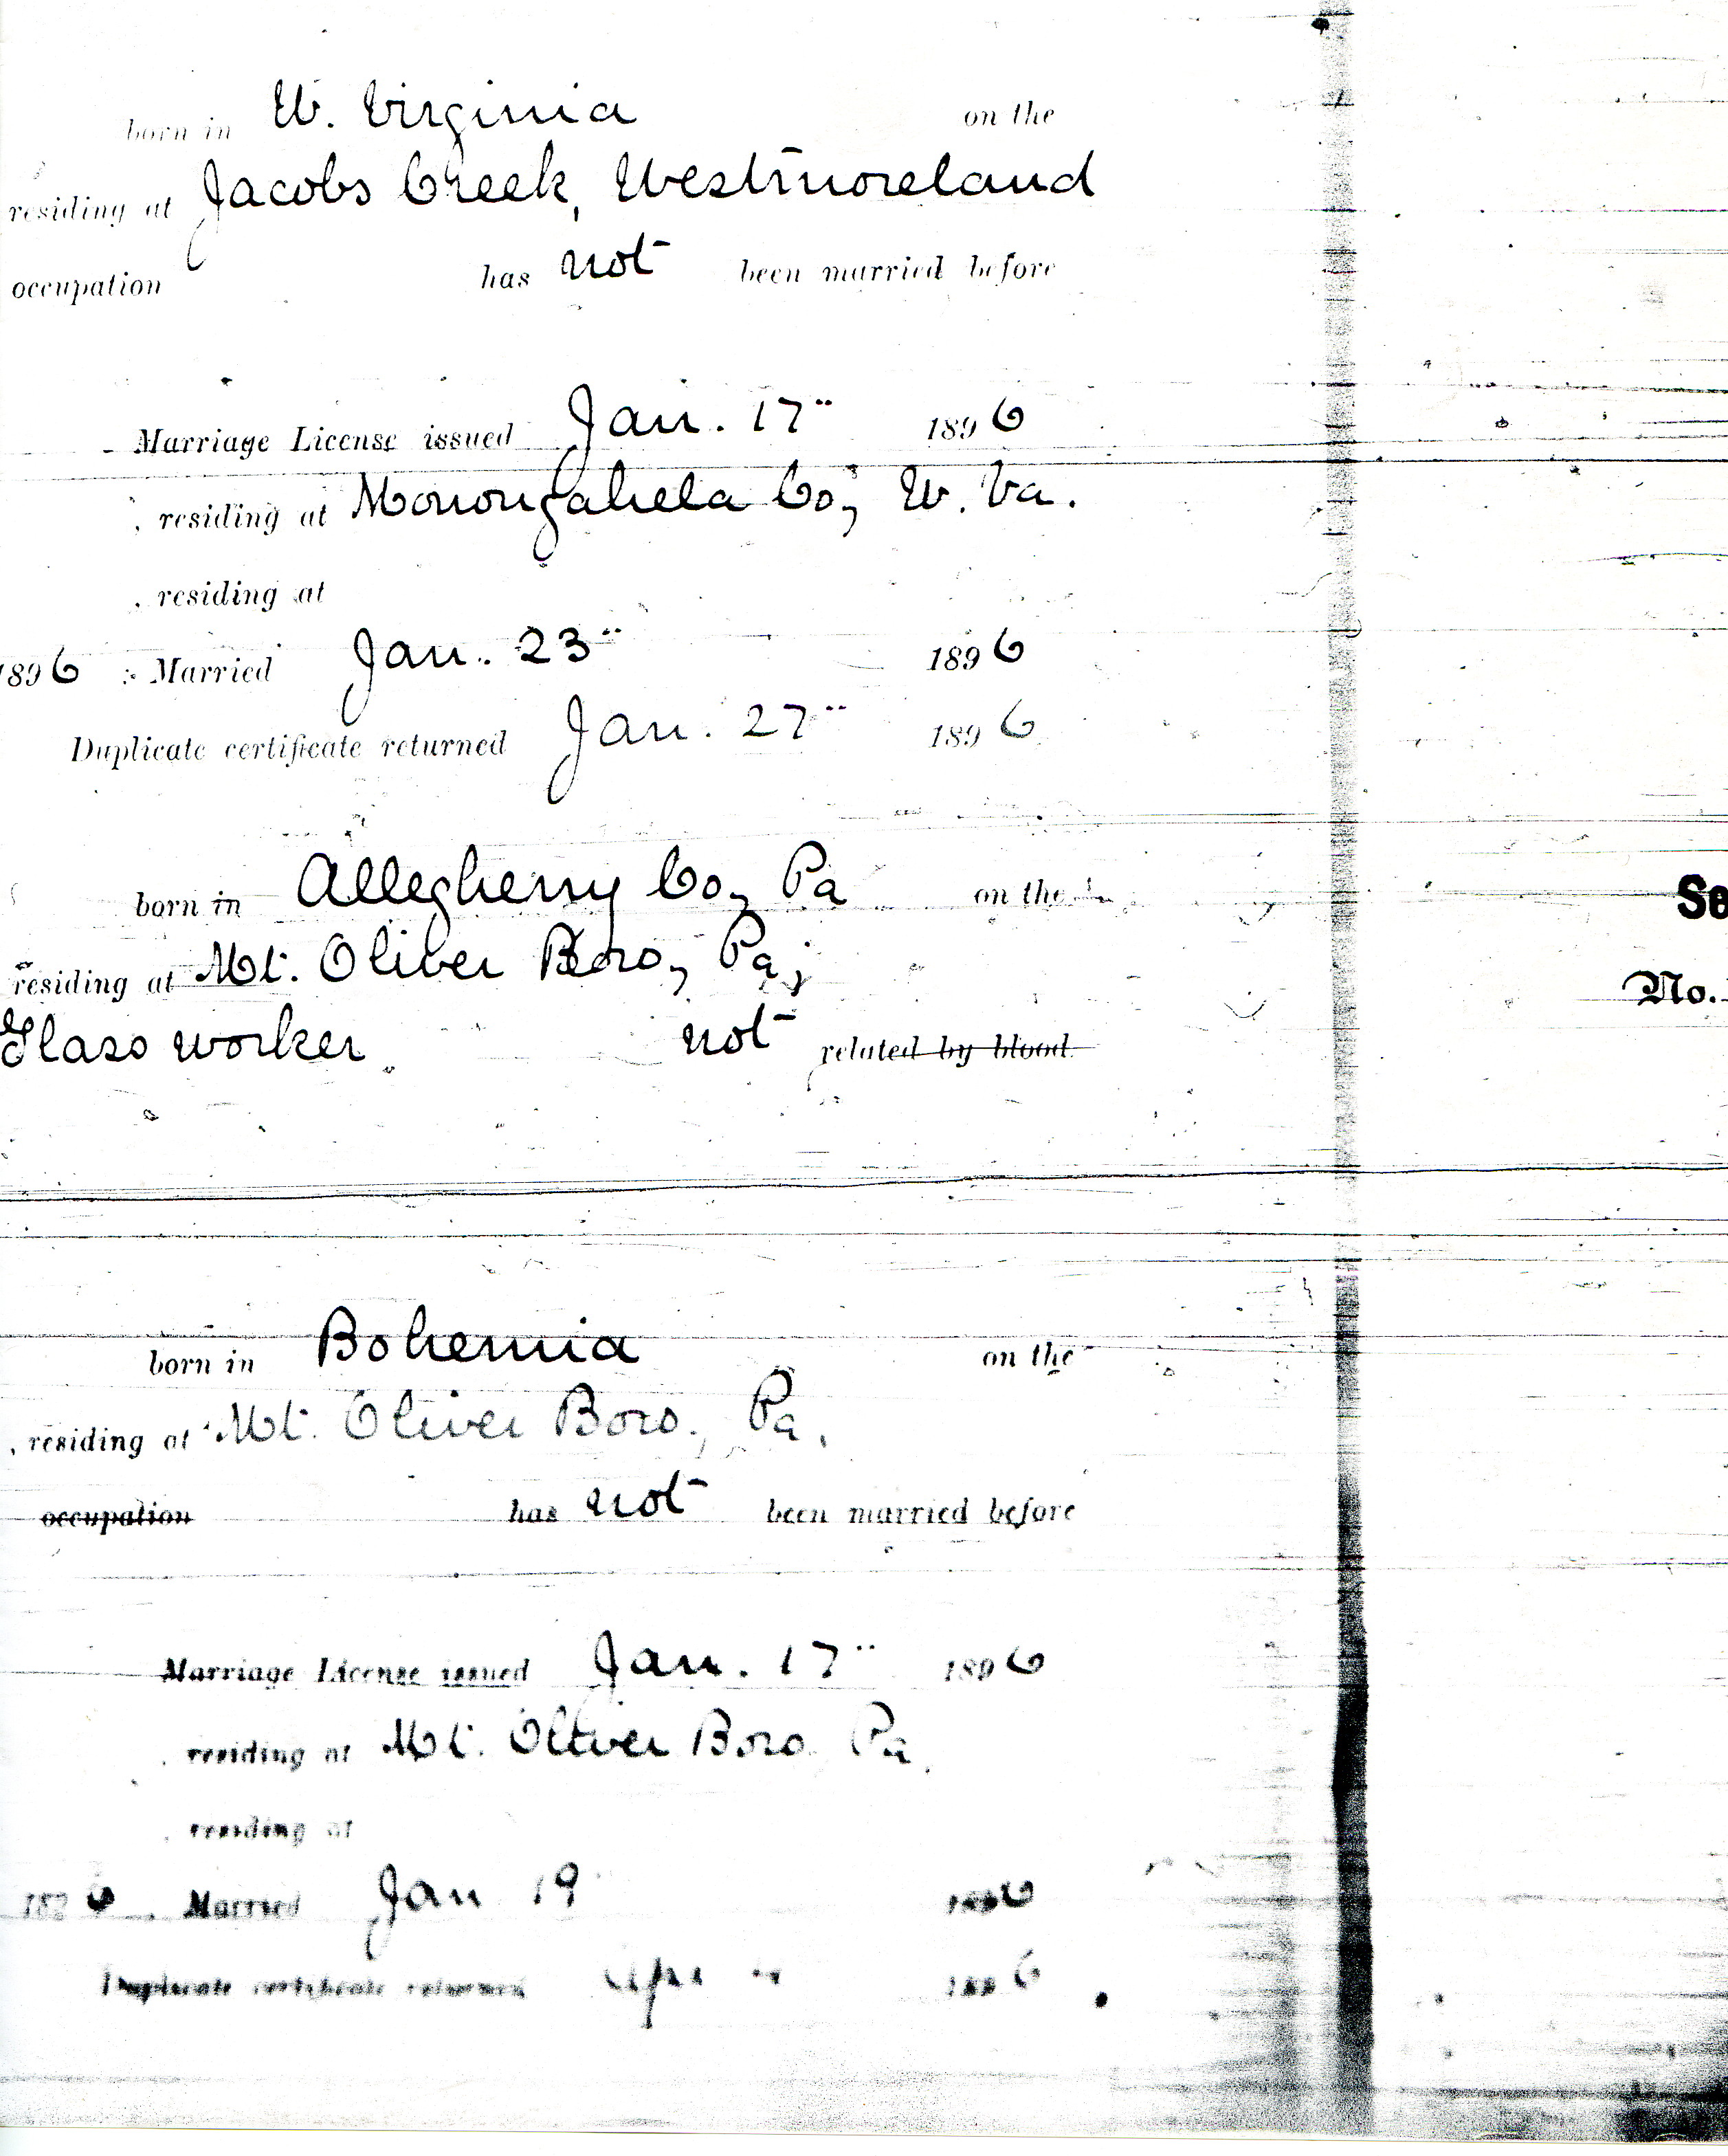 born in W. Virginia on the
residing at Jacobs Creek, Westmoreland
occupation has not been married before
Marriage License issued Jan. 17" 1896
, residing at Monongahela Co; W. Va.
, residing at
1896 Married Jan. 23" 1896
Duplicate certificate returned Jan. 27" 1896
born in Allegheny Co, Pa on the
Se
residing at Mt. Oliver Boro, Pa,
No.
Glass worker not related by blood
born in Bohemia on the
, residing at Mt. Oliver Boro., Pa.
occupation has not been married before
Marriage License issued Jan. 17" 1896
, residing at Mt. Oliver Boro Pa.
, residing at
Married Jan 19 1896
Duplicate certificate returned 1896